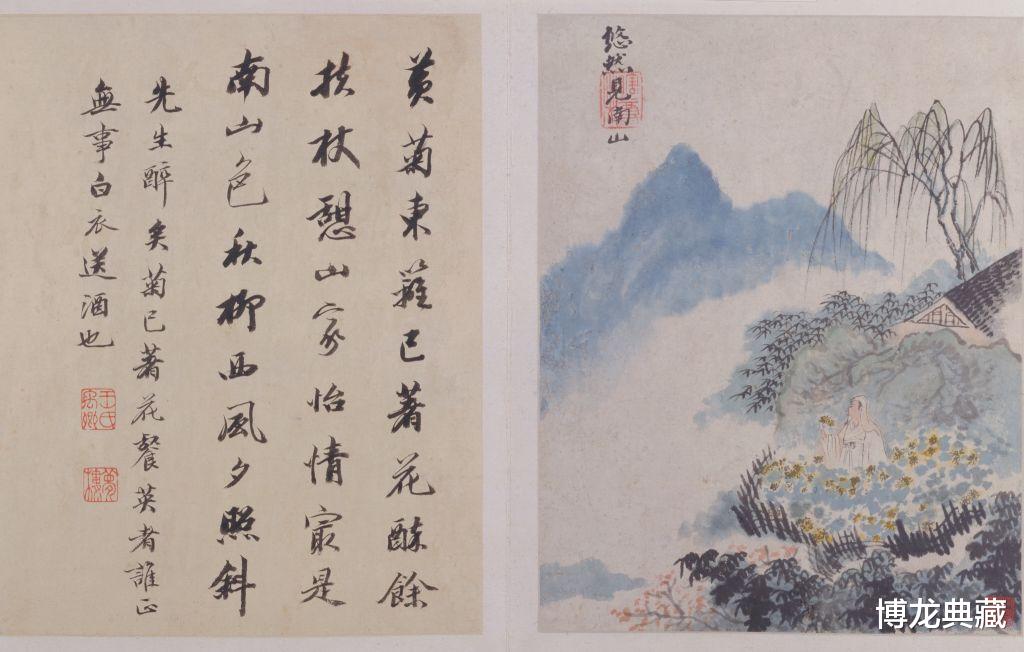 悠然見南山
黃菊東籬已著花酥餘
扶杖憩山家怡情㝡是
南山色秋柳西風夕照斜
先生醉矣菊已著花餐英者誰正
無事白衣送酒也
王氏禹卿
夢樓
博龙典藏